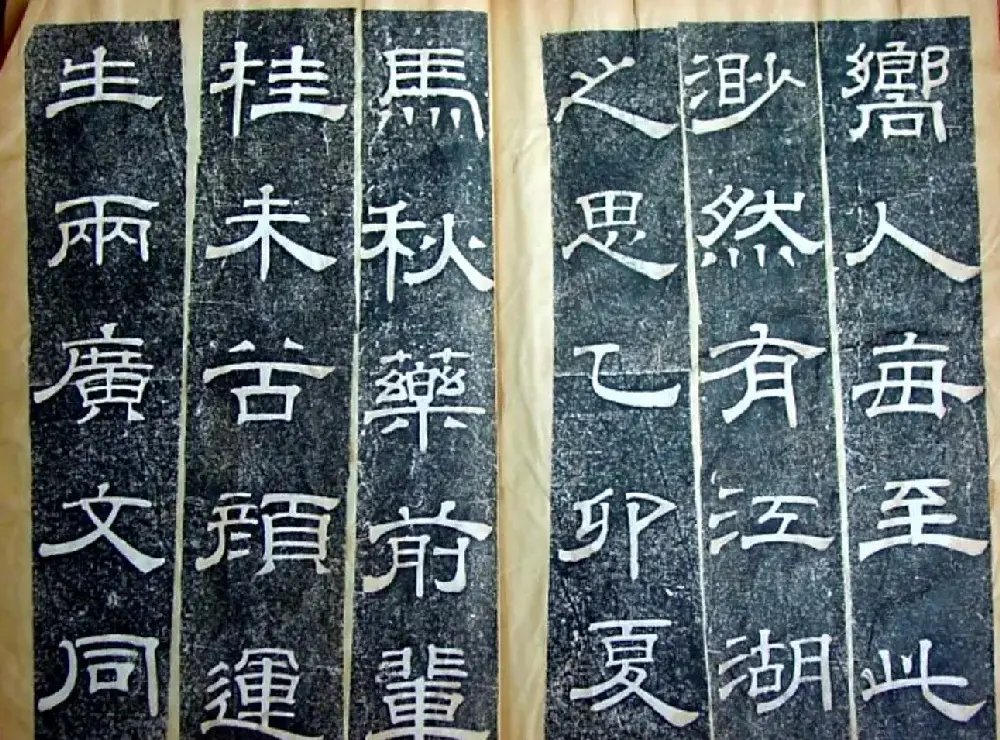 嚮人每至此
渺然有江湖
之思乙卯夏
馬秋藥前輩
桂未谷顏運
生兩廣文同